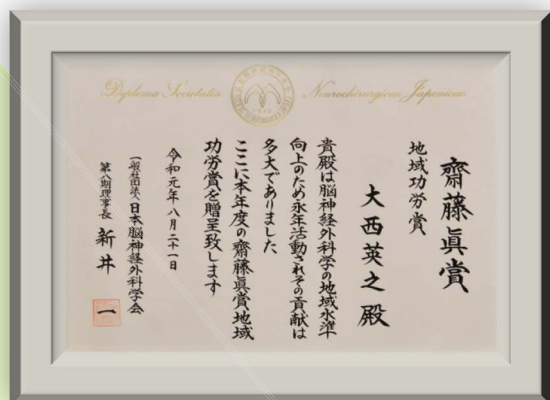 Diploma Societatis Neurochirurgicae Japonicae
齋藤眞賞
地域功労賞
大西英之殿
貴殿は脳神経外科学の地域水準
向上のため永年活動されその貢献は
多大でありました
ここに本年度の齋藤眞賞地域
功労賞を贈呈致します
令和元年八月二十一日
一般社団法人日本脳神経外科学会
第八期理事長 新井 一